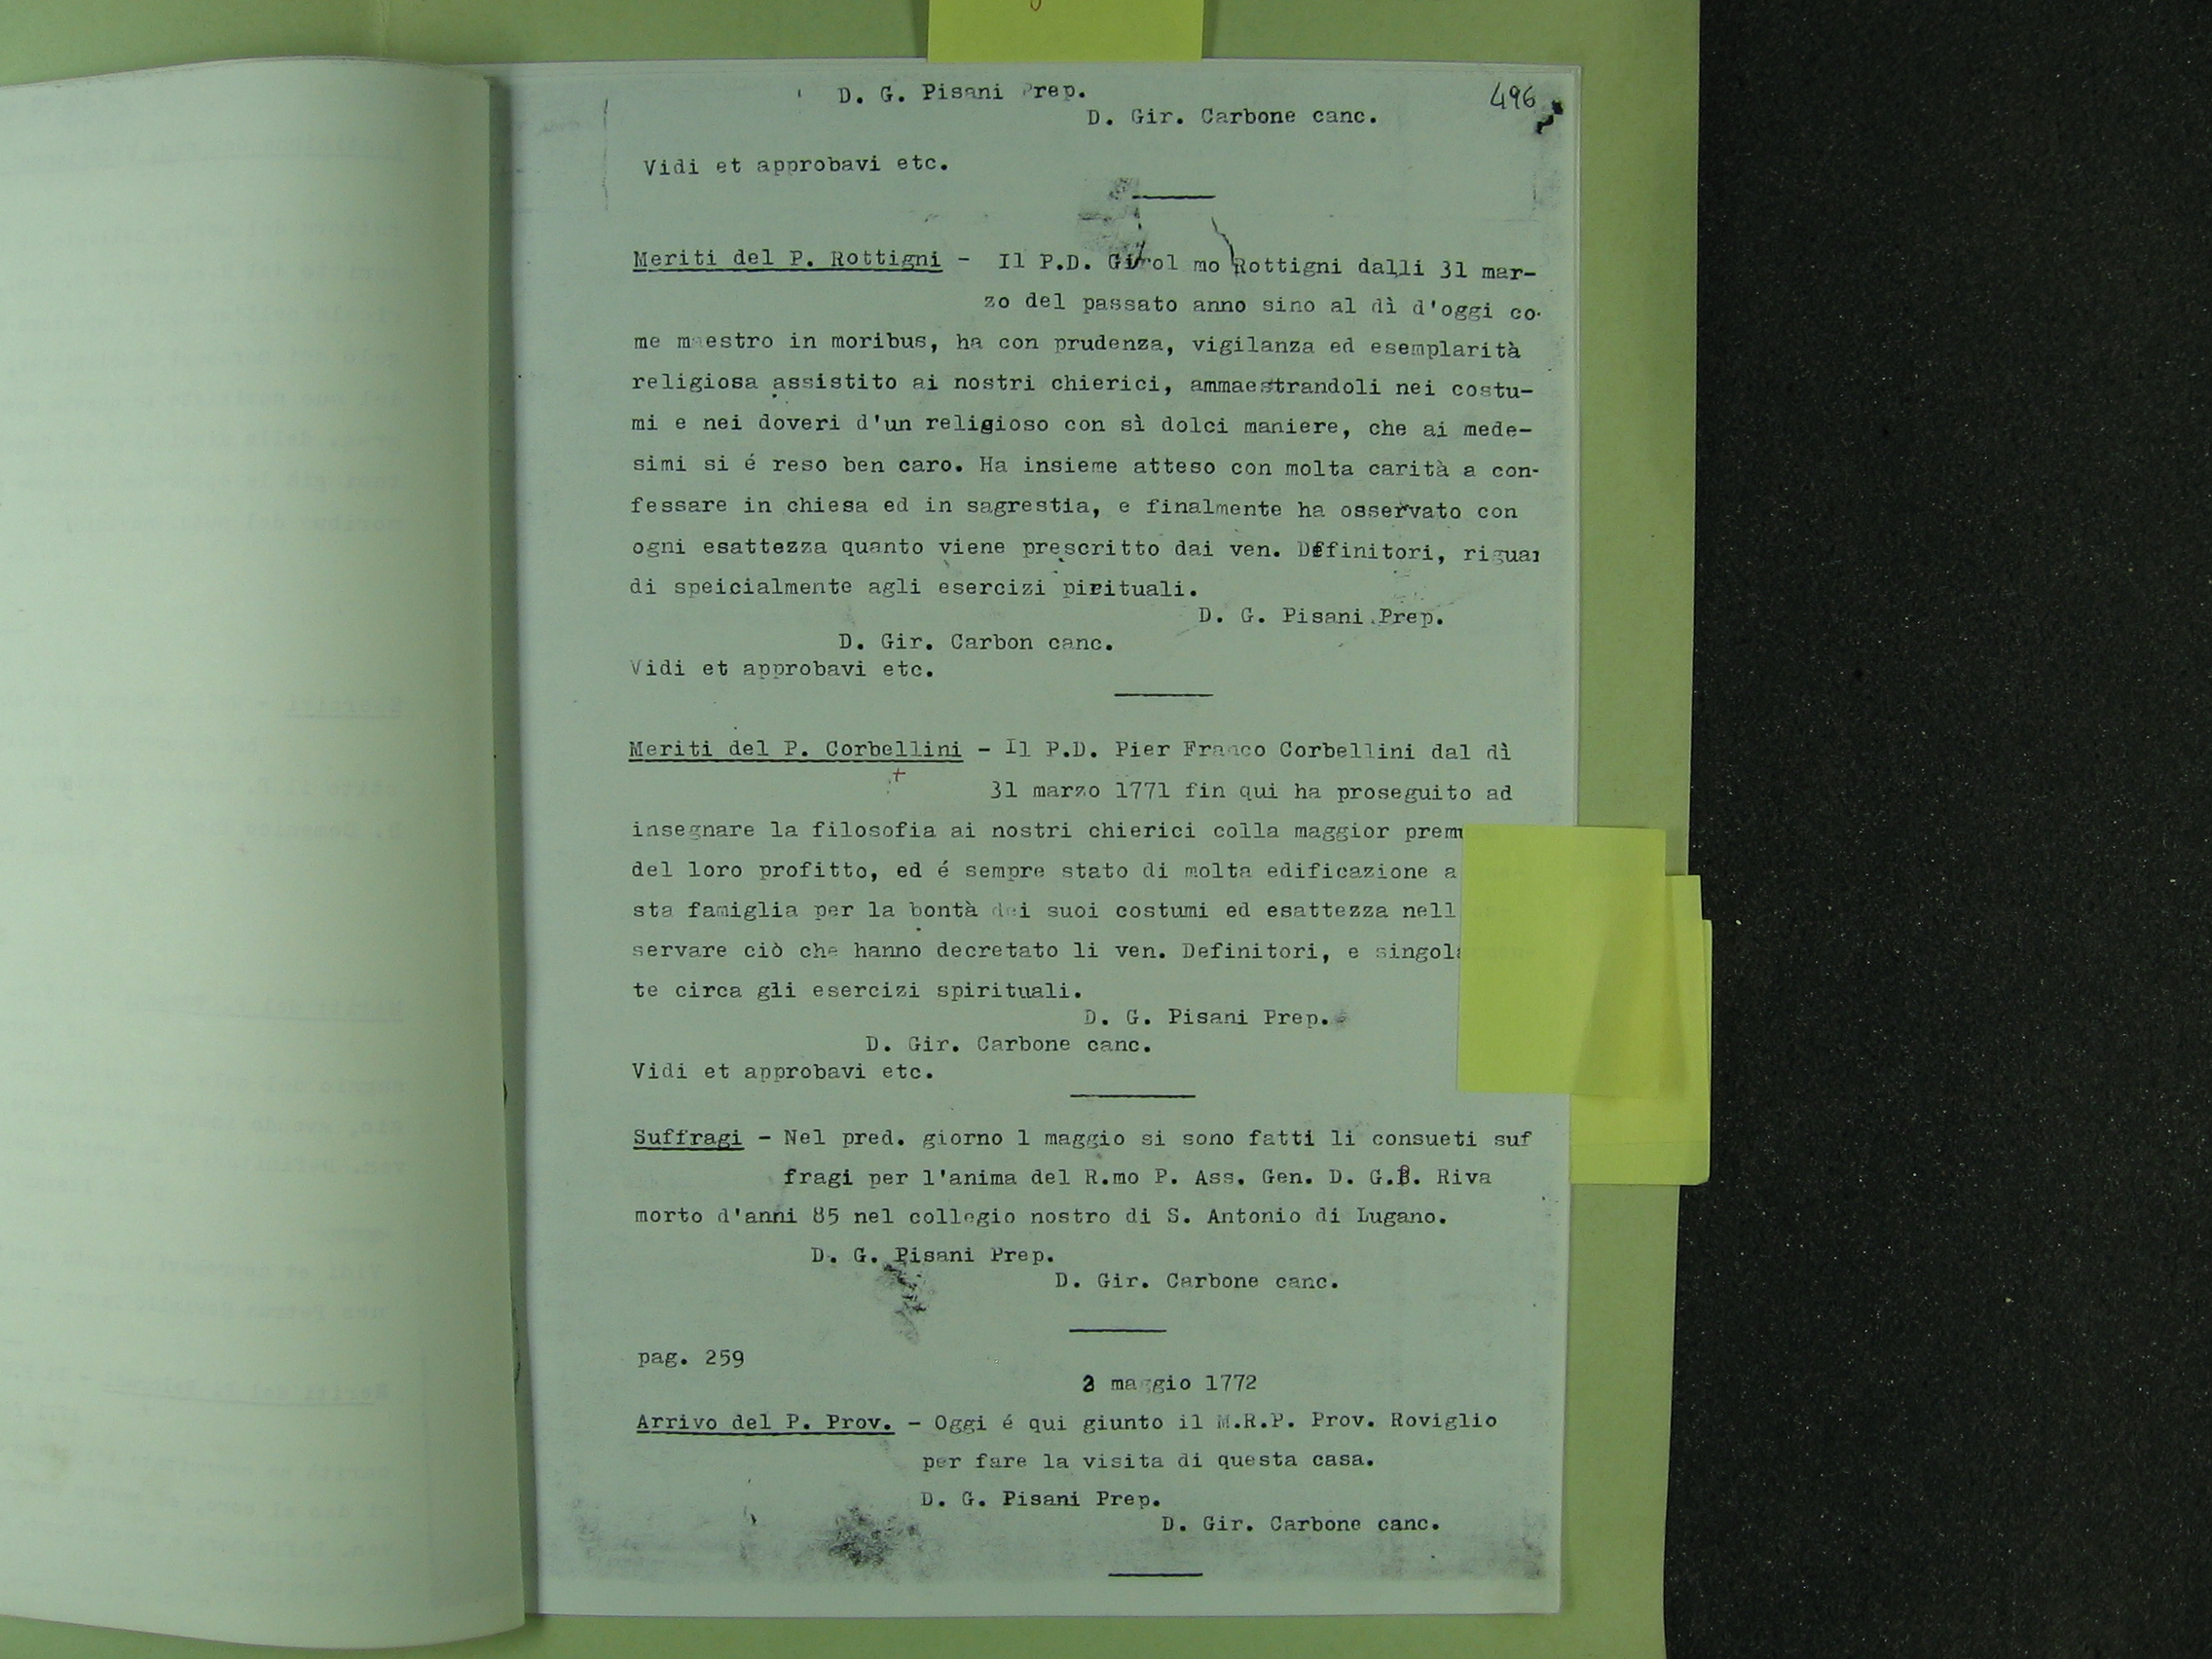 496
D. G. Pisani Prep.
D. Gir. Carbone canc.
Vidi et approbavi etc.
Meriti del P. Rottigni - Il P.D. Girol mo Rottigni dalli 31 mar-
zo del passato anno sino al dì d'oggi co-
me maestro in moribus, ha con prudenza, vigilanza ed esemplarità
religiosa assistito ai nostri chierici, ammaestrandoli nei costu-
mi e nei doveri d'un religioso con sì dolci maniere, che ai mede-
simi si é reso ben caro. Ha insieme atteso con molta carità a con-
fessare in chiesa ed in sagrestia, e finalmente ha osservato con
ogni esattezza quanto viene prescritto dai ven. Definitori, riguar
di speicialmente agli esercizi pirituali.
D. G. Pisani Prep.
D. Gir. Carbon canc.
Vidi et approbavi etc.
Meriti del P. Corbellini - Il P.D. Pier Franco Corbellini dal dì
31 marzo 1771 fin qui ha proseguito ad
insegnare la filosofia ai nostri chierici colla maggior
del loro profitto, ed é sempre stato di molta edificazione a
sta famiglia per la bontà dei suoi costumi ed esattezza nell
servare ciò che hanno decretato li ven. Definitori, e
te circa gli esercizi spirituali.
D. G. Pisani Prep.
D. Gir. Carbone canc.
Vidi et approbavi etc.
Suffragi - Nel pred. giorno 1 maggio si sono fatti li consueti suf
fragi per l'anima del R.mo P. Ass. Gen. D. G.B. Riva
morto d'anni 85 nel collegio nostro di S. Antonio di Lugano.
D. G. Pisani Prep.
D. Gir. Carbone canc.
pag. 259
maggio 1772
Arrivo del P. Prov. - Oggi é qui giunto il M.R.P. Prov. Roviglio
per fare la visita di questa casa.
D. G. Pisani Prep.
D. Gir. Carbone canc.